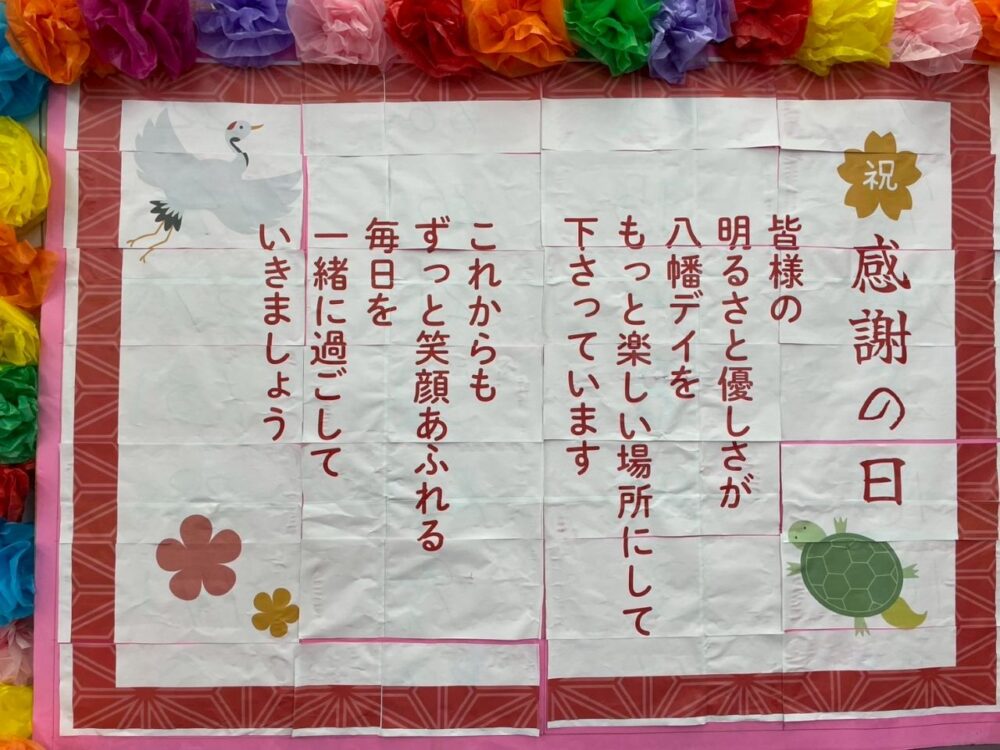 祝
感謝の日
皆様の
明るさと優しさが
八幡デイを
もっと楽しい場所にして
下さっています
これからも
ずっと笑顔あふれる
毎日を
一緒に過ごして
いきましょう